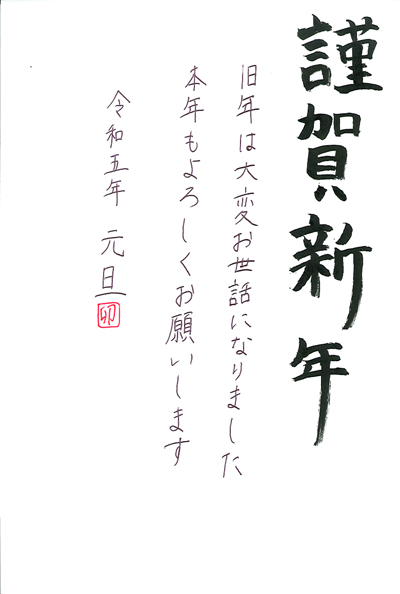 謹賀新年
旧年は大変お世話になりました
本年もよろしくお願いします
令和五年 元旦
卯